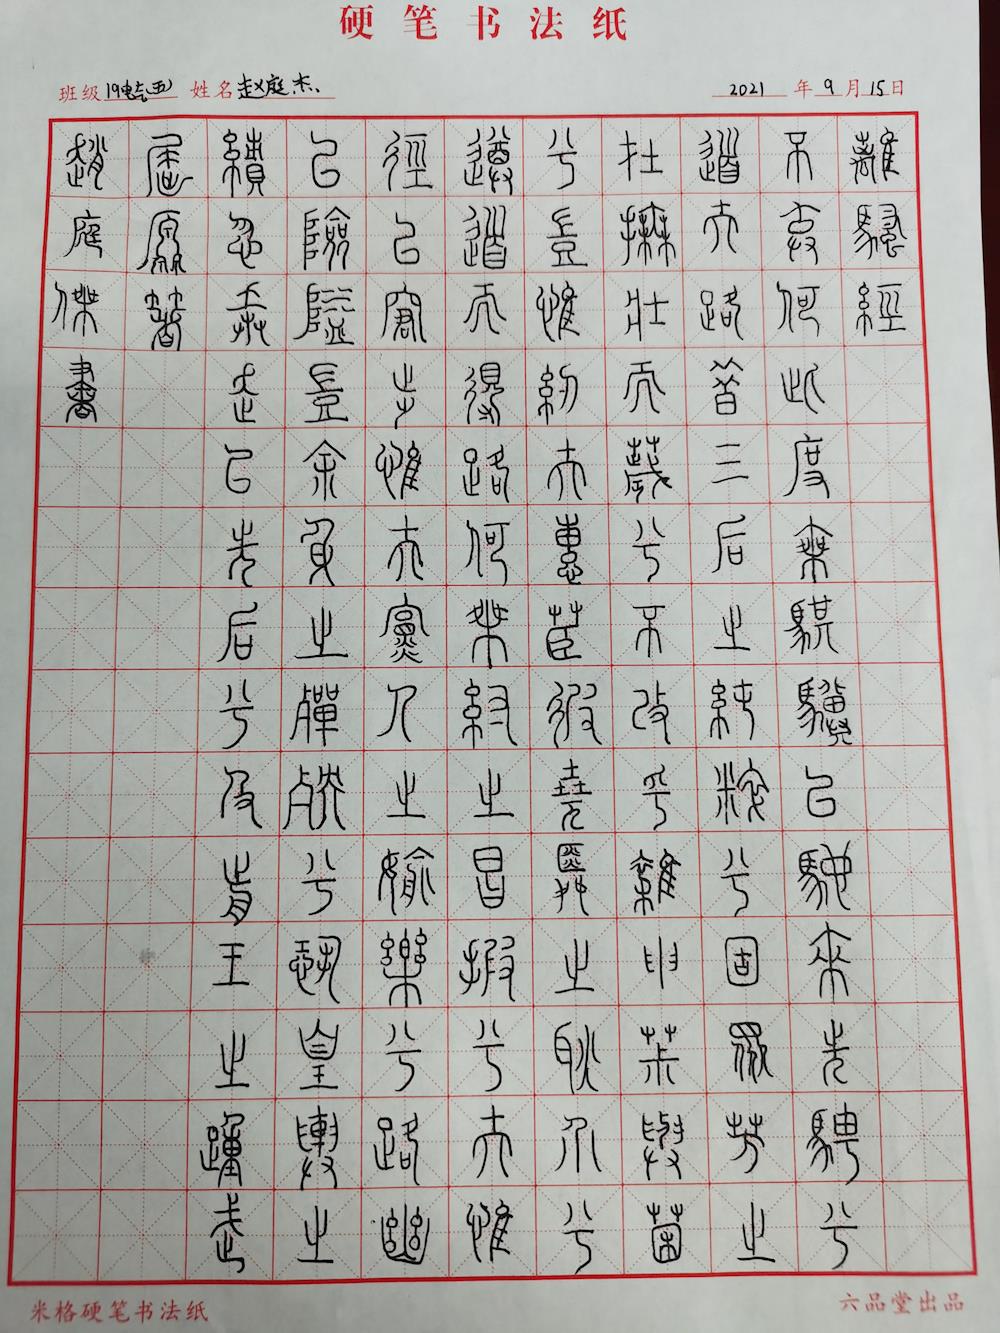 硬笔书法纸
班级 19电气(五) 姓名 赵庭杰 2021 年 9 月 15 日
離騷經
不棄何此度乘騏驥以馳來先騁兮
道夫路昔三后之純粹兮固眾芳之
在撫壯而穢兮不改乎雜申椒與菌
兮豈惟紉夫蕙茝彼堯舜之耿介兮
遵道而得路何桀紂之昌披兮夫惟
徑以窘步惟夫黨人之媮樂兮路幽
以險隘豈余身之憚殃兮恐皇輿之
績忽奔走以先后兮及前王之踵武
屈原著
趙庭傑書
米格硬笔书法纸
六品堂出品